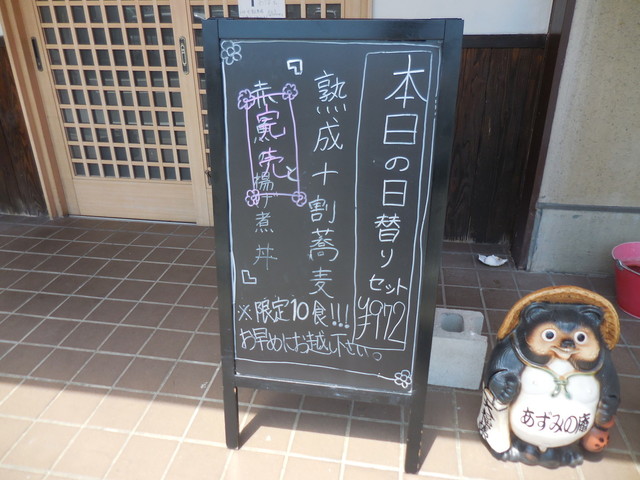 本日の日替り
セット
¥972
熟成十割蕎麦
『赤魚と揚げ煮丼』
完売
※限定10食!!!
お早めにお越し下せい。
あずみの庵